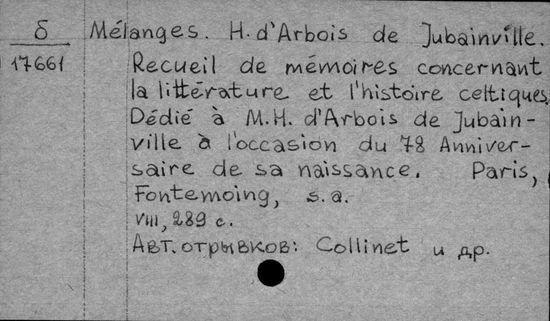 δ
17661
Mélanges. H. d'Arbois de Jubainville.
Recueil de mémoires concernant
la littérature et l'histoire celtiques.
Dédié à M.H. d'Arbois de Jubain-
ville à l'occasion du 78 Anniver-
saire de sa naissance. Paris,
Fontemoing, s.a.
VIII, 289 c.
Авт. отрывков: Collinet и др.